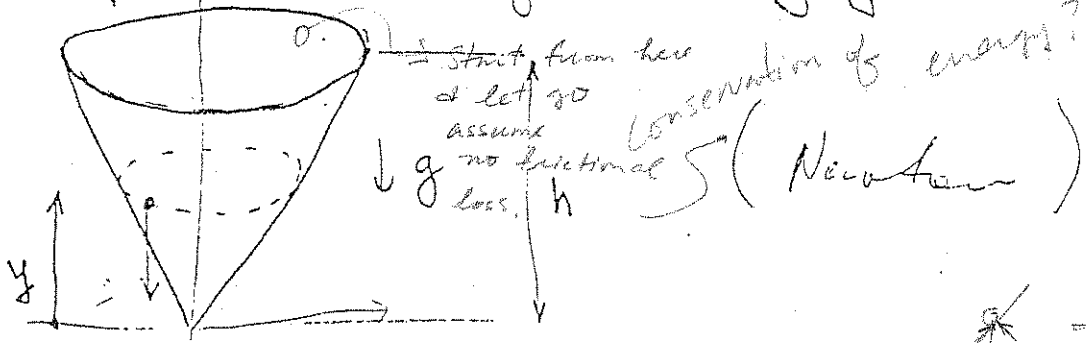 σ.
start from here
& let go
assume
no frictional
loss.
conservation of energy?
g
h
(Newton)
y
=